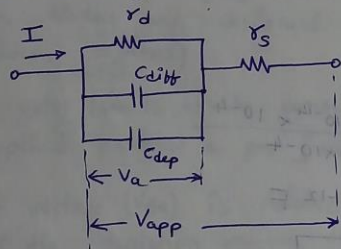 I
r_d
r_s
C_diff
C_dep
V_a
V_app